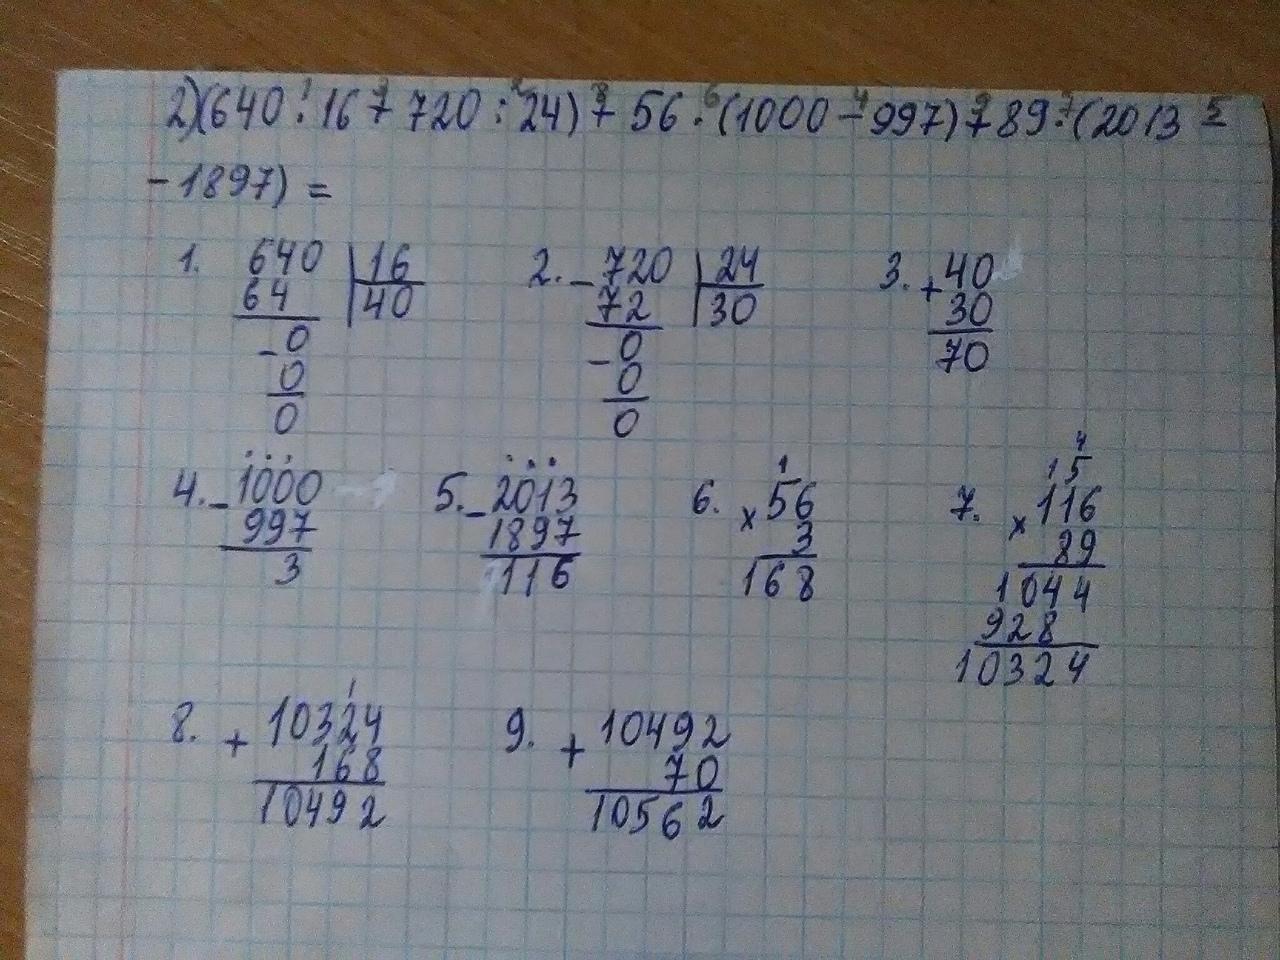 2)(640:16+720:24)+56·(1000-997)+89·(2013-
-1897)=
1. 640 | 16
64 | 40
-0
0
0
2. -720 | 24
72 | 30
-0
0
0
3. +40
30
70
4. -1000
997
3
5. -2013
1897
116
6. 1
x56
3
168
7. 4
15
x116
89
1044
928
10324
8. 1
+10324
168
10492
9. +10492
70
10562